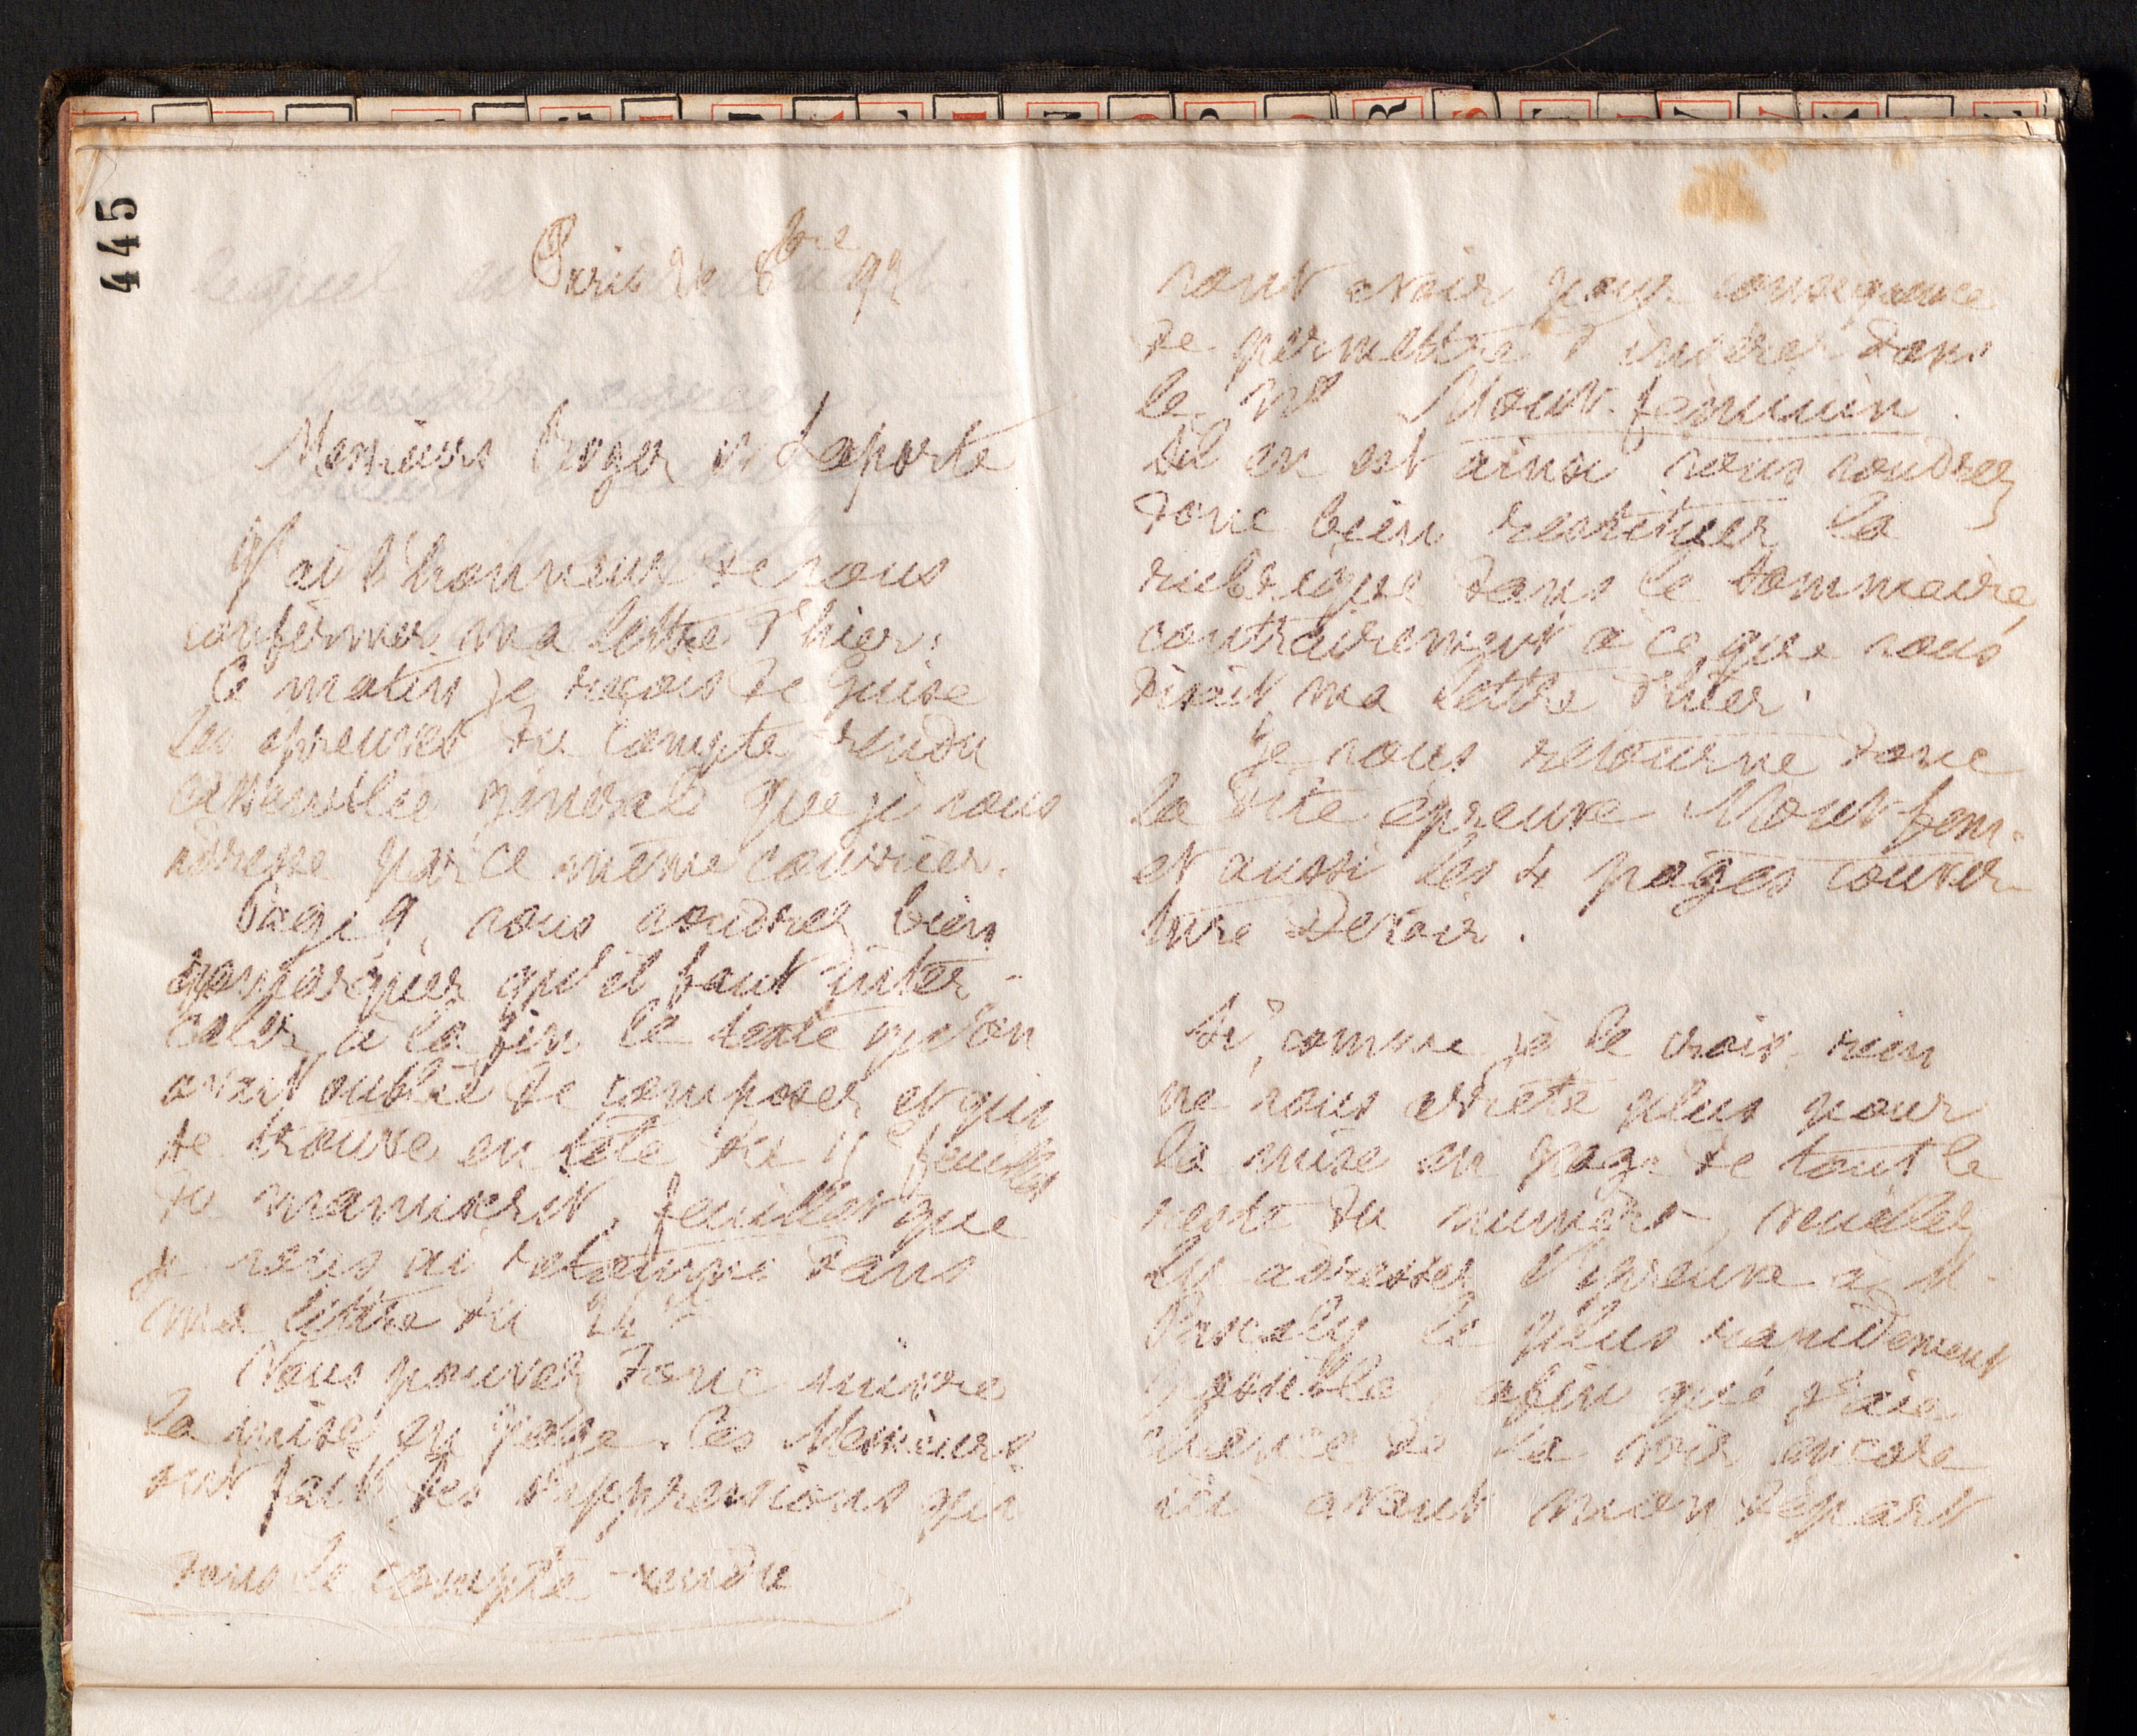 445
Paris 8bre 92
Messieurs Roger et Laporte
J'ai l'honneur de vous
confirmer ma lettre d'hier.
Ce matin je reçois de Guise
les épreuves du Compte rendu
assemblée générale que je vous
adresse par ce même courrier.
Page 9, vous voudrez bien
remarquer qu'il faut inter-
caler à la fin le texte qu'on
avait oublié de composer et qui
se trouve en tête du feuillet
du manuscrit, feuillet que
je vous ai retourné dans
ma lettre du 24
Vous pouvez donc suivre
la mise en page. Ces Messieurs
ont fait des suppressions qui
dans le compte-rendu
vont avoir pour conséquence
de permettre d'insérer dans
le No Mouvt féminin.
S'il en est ainsi vous voudrez
donc bien restituer la
rubrique dans le sommaire,
contrairement à ce que vous
disait ma lettre d'hier.
Je vous retourne donc
la dite épreuve Mouvt fém.
et aussi les 4 pages couver-
ture Devoir.
Si, comme je le crois, rien
ne vous arrête plus pour
la mise en page de tout le
reste du numéro, veuillez
en adresser l'épreuve à M.
Pascaly le plus rapidement
possible, afin que j'aie
chance de la voir encore
ici avant mon départ